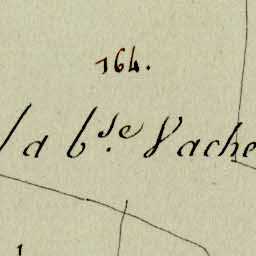 164.
la b.se Vache